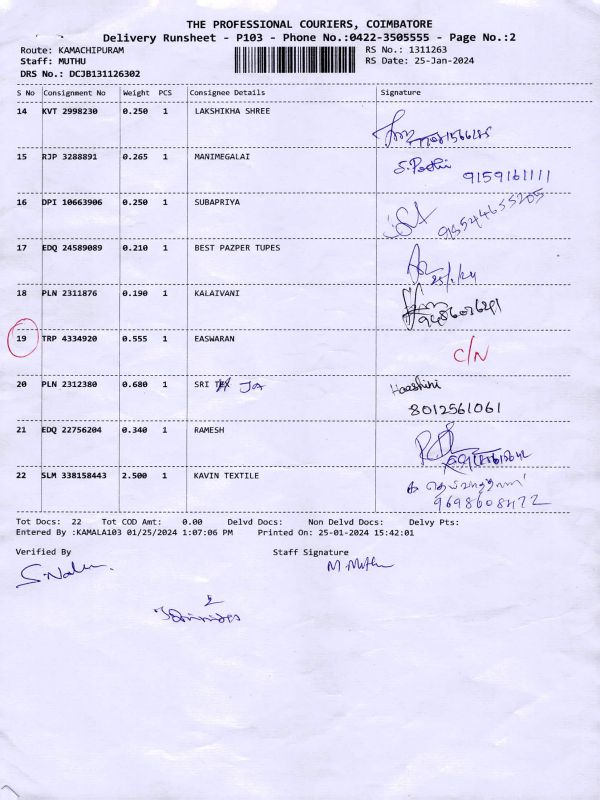 THE PROFESSIONAL COURIERS, COIMBATORE
Delivery Runsheet - P103 - Phone No.:0422-3505555 - Page No.:2
Route: KAMACHIPURAM RS No.: 1311263
Staff: MUTHU RS Date: 25-Jan-2024
DRS No.: DCJB131126302
S No Consignment No Weight PCS Consignee Details Signature
14 KVT 2998230 0.250 1 LAKSHIKHA SHREE
15 RJP 3288891 0.265 1 MANIMEGALAI
9159161111
16 DPI 10663906 0.250 1 SUBAPRIYA
17 EDQ 24589089 0.210 1 BEST PAZPER TUPES
25/1/24
18 PLN 2311876 0.190 1 KALAIVANI
19 TRP 4334920 0.555 1 EASWARAN
C/N
20 PLN 2312380 0.680 1 SRI JA
Haashini
8012561061
21 EDQ 22756204 0.340 1 RAMESH
22 SLM 338158443 2.500 1 KAVIN TEXTILE
9698608472
Tot Docs: 22 Tot COD Amt: 0.00 Delvd Docs: Non Delvd Docs: Delvy Pts:
Entered By :KAMALA103 01/25/2024 1:07:06 PM Printed On: 25-01-2024 15:42:01
Verified By Staff Signature
M. Muthu